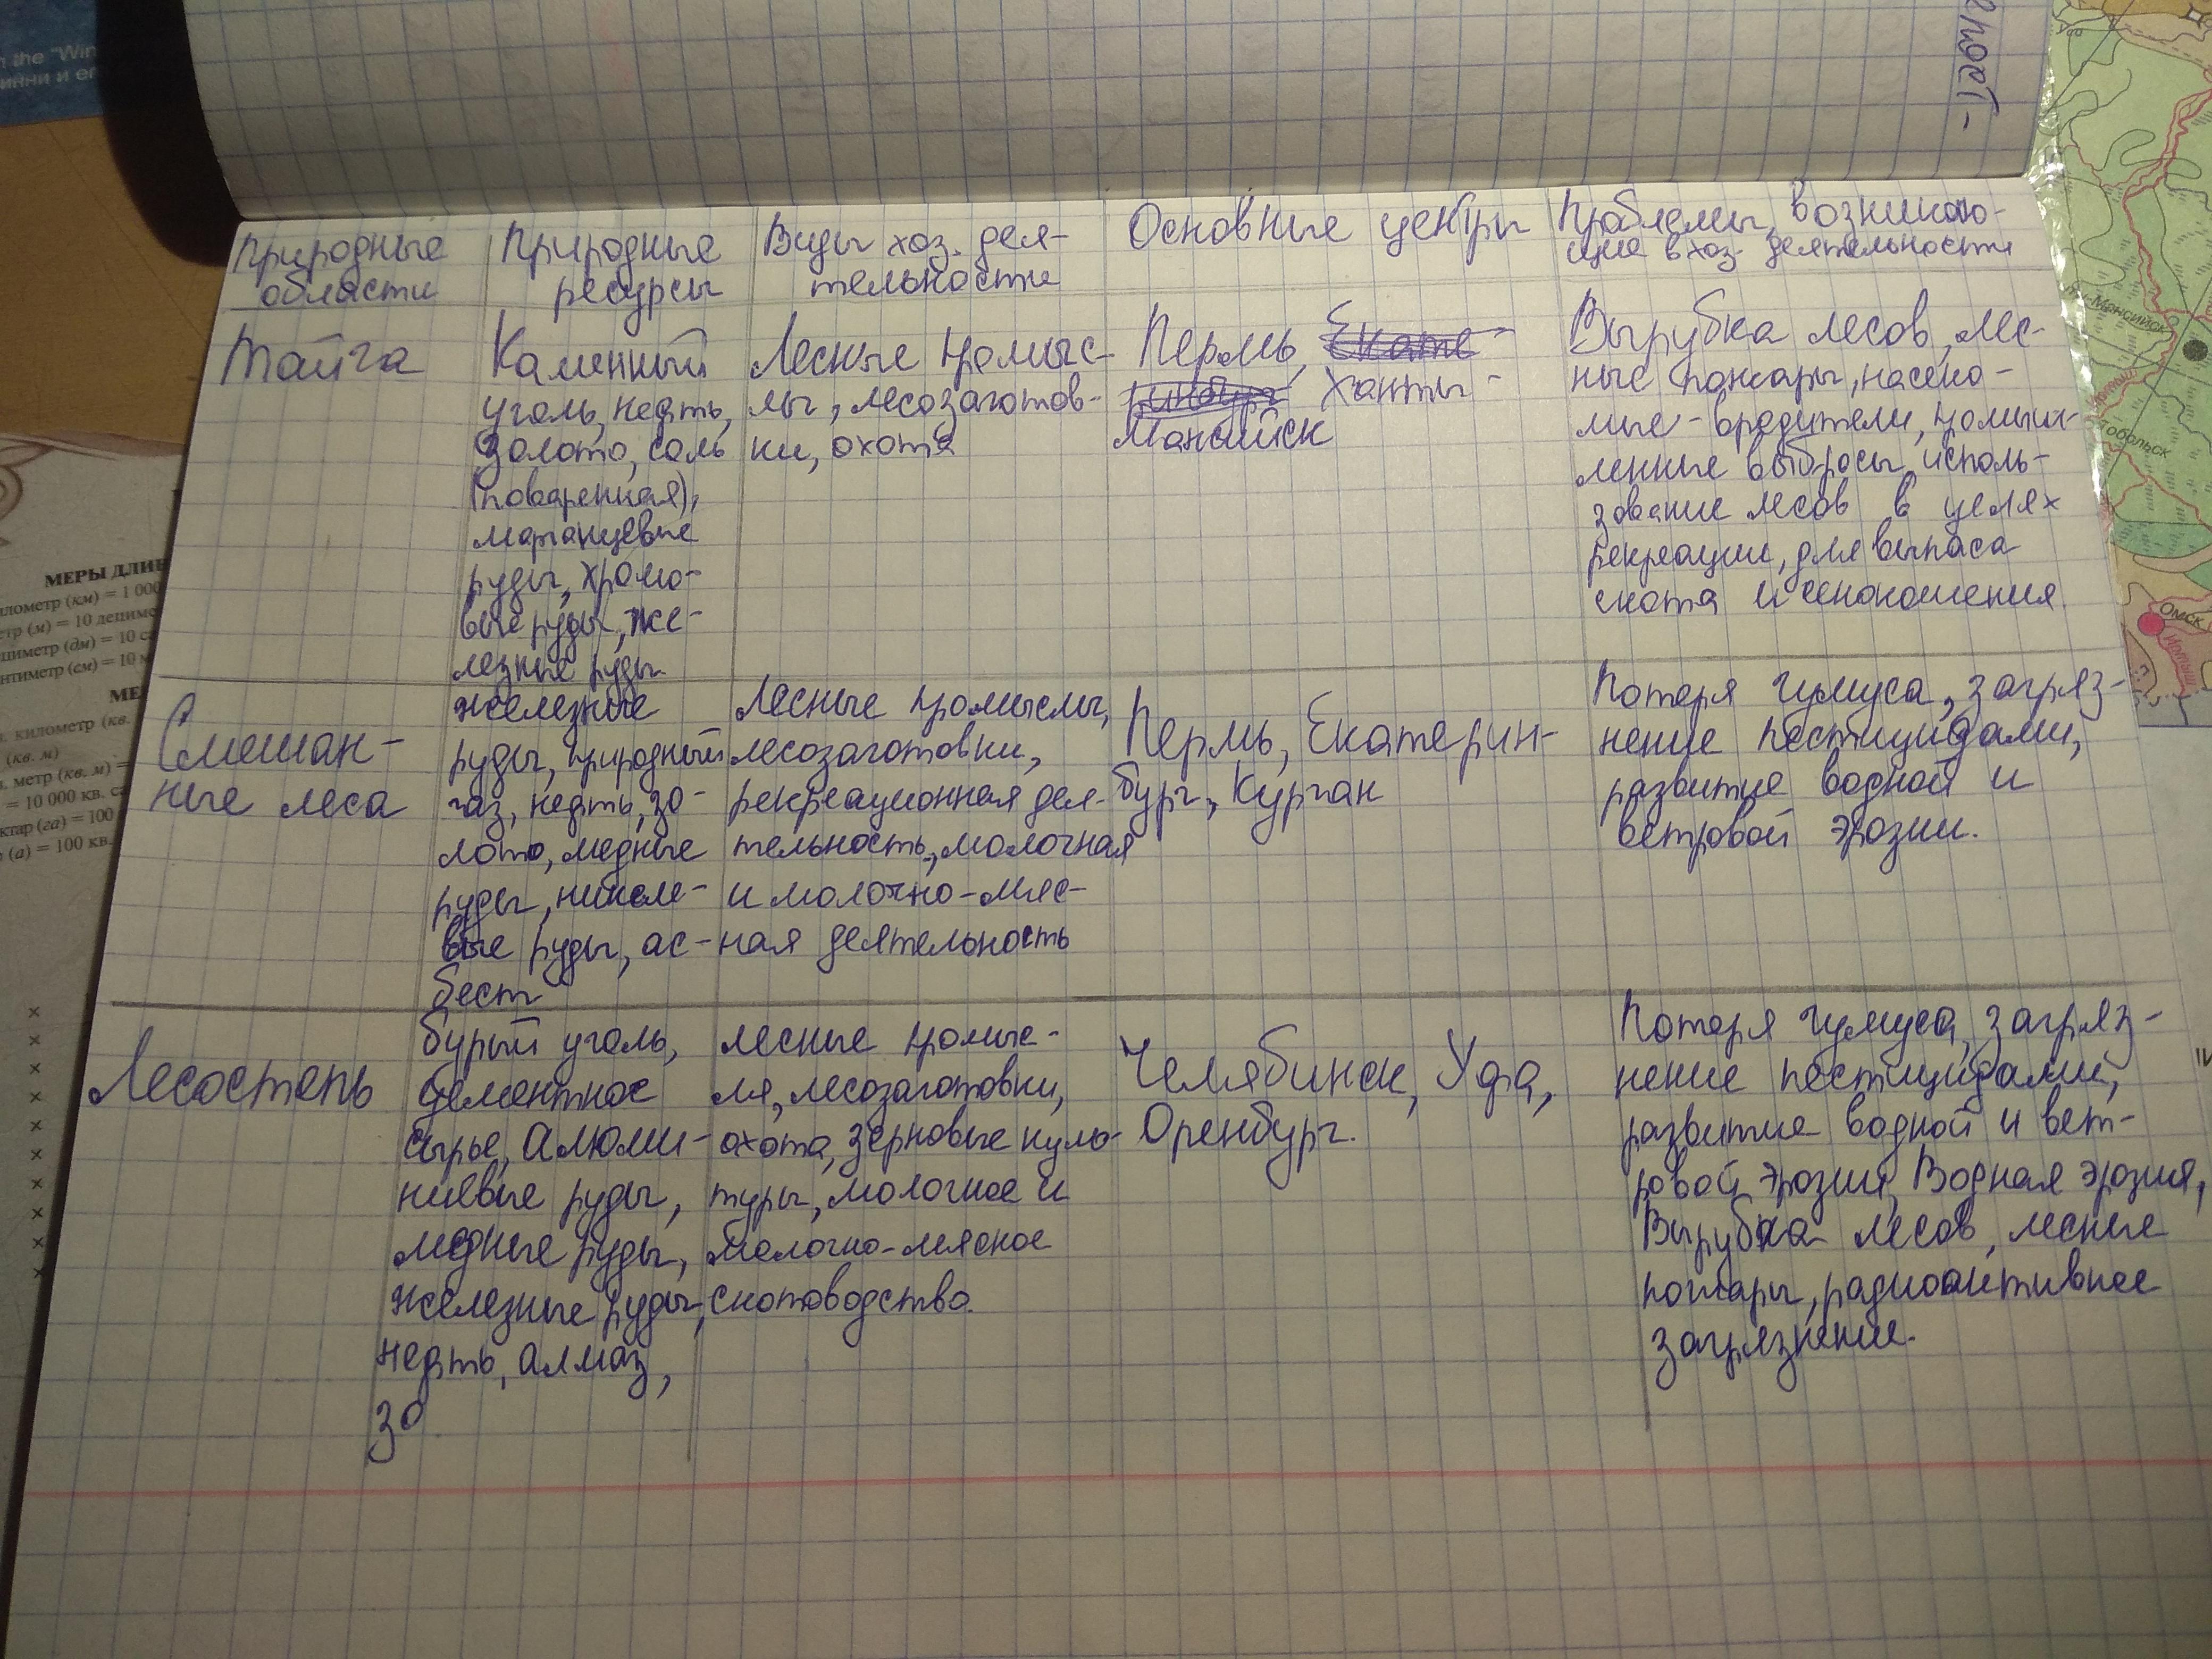 n the "Win
инни и ег
ность-
Природные области
Природные ресурсы
Виды хоз. дея-
тельности
Основные центры
Проблемы, возникаю-
щие в хоз. деятельности
Тайга
Каменный
уголь, нефть,
золото, соль
(поваренная),
марганцевые
руды, хромо-
вые руды, же-
лезные руды.
Лесные промыс-
лы, лесозаготов-
ки, охота
Пермь, Екате-
ринбург Ханты-
Мансийск
Вырубка лесов, лес-
ные пожары, насеко-
мые-вредители, промыш-
ленные выбросы, исполь-
зование лесов в целях
рекреации, для выпаса
скота и сенокошения.
Смешан-
ные леса
железные
руды, природный
газ, нефть, зо-
лото, медные
руды, никеле-
вые руды, ас-
бест
лесные промыслы,
лесозаготовки,
рекреационная дея-
тельность, молочная
и молочно-мяс-
ная деятельность
Пермь, Екатерин-
бург, Курган
Потеря гумуса, загряз-
нение пестицидами,
развитие водной и
ветровой эрозии.
Лесостепь
бурый уголь,
цементное
сырье, алюми-
ниевые руды,
медные руды,
железные руды,
нефть, алмаз,
зо
лесные промыс-
ля, лесозаготовки,
охота, зерновые куль-
туры, молочное и
молочно-мясное
скотоводство.
Челябинск, Уфа,
Оренбург.
Потеря гумуса, загряз-
нение пестицидами,
развитие водной и вет-
ровой эрозии, Водная эрозия,
Вырубка лесов, лесные
пожары, радиоактивное
загрязнение.
МЕРЫ ДЛИН
илометр (км) = 1 000
етр (м) = 10 дециме
циметр (дм) = 10 са
нтиметр (см) = 10 м
МЕ
. километр (кв.
(кв. м)
. метр (кв. м) =
= 10 000 кв. са
ктар (га) = 100
(а) = 100 кв.
-Мансийск
Иртыш
Тобольск
Омск
Иртыш